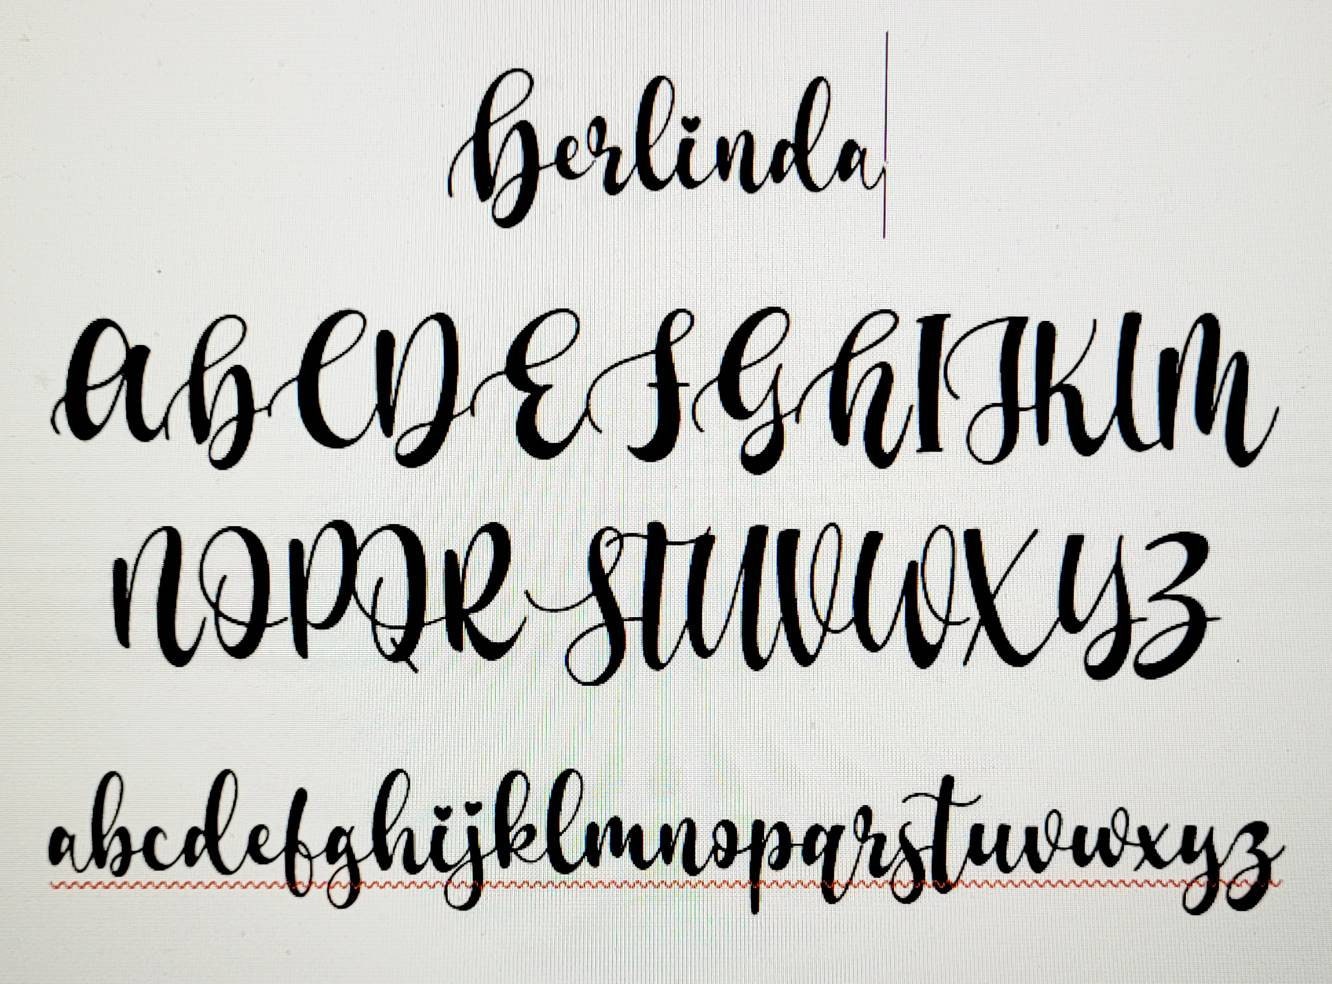 Berlinda
ABCDEFGHIJKLM
NOPQRSTUVWXYZ
abcdefghijklmnopqrstuvwxyz